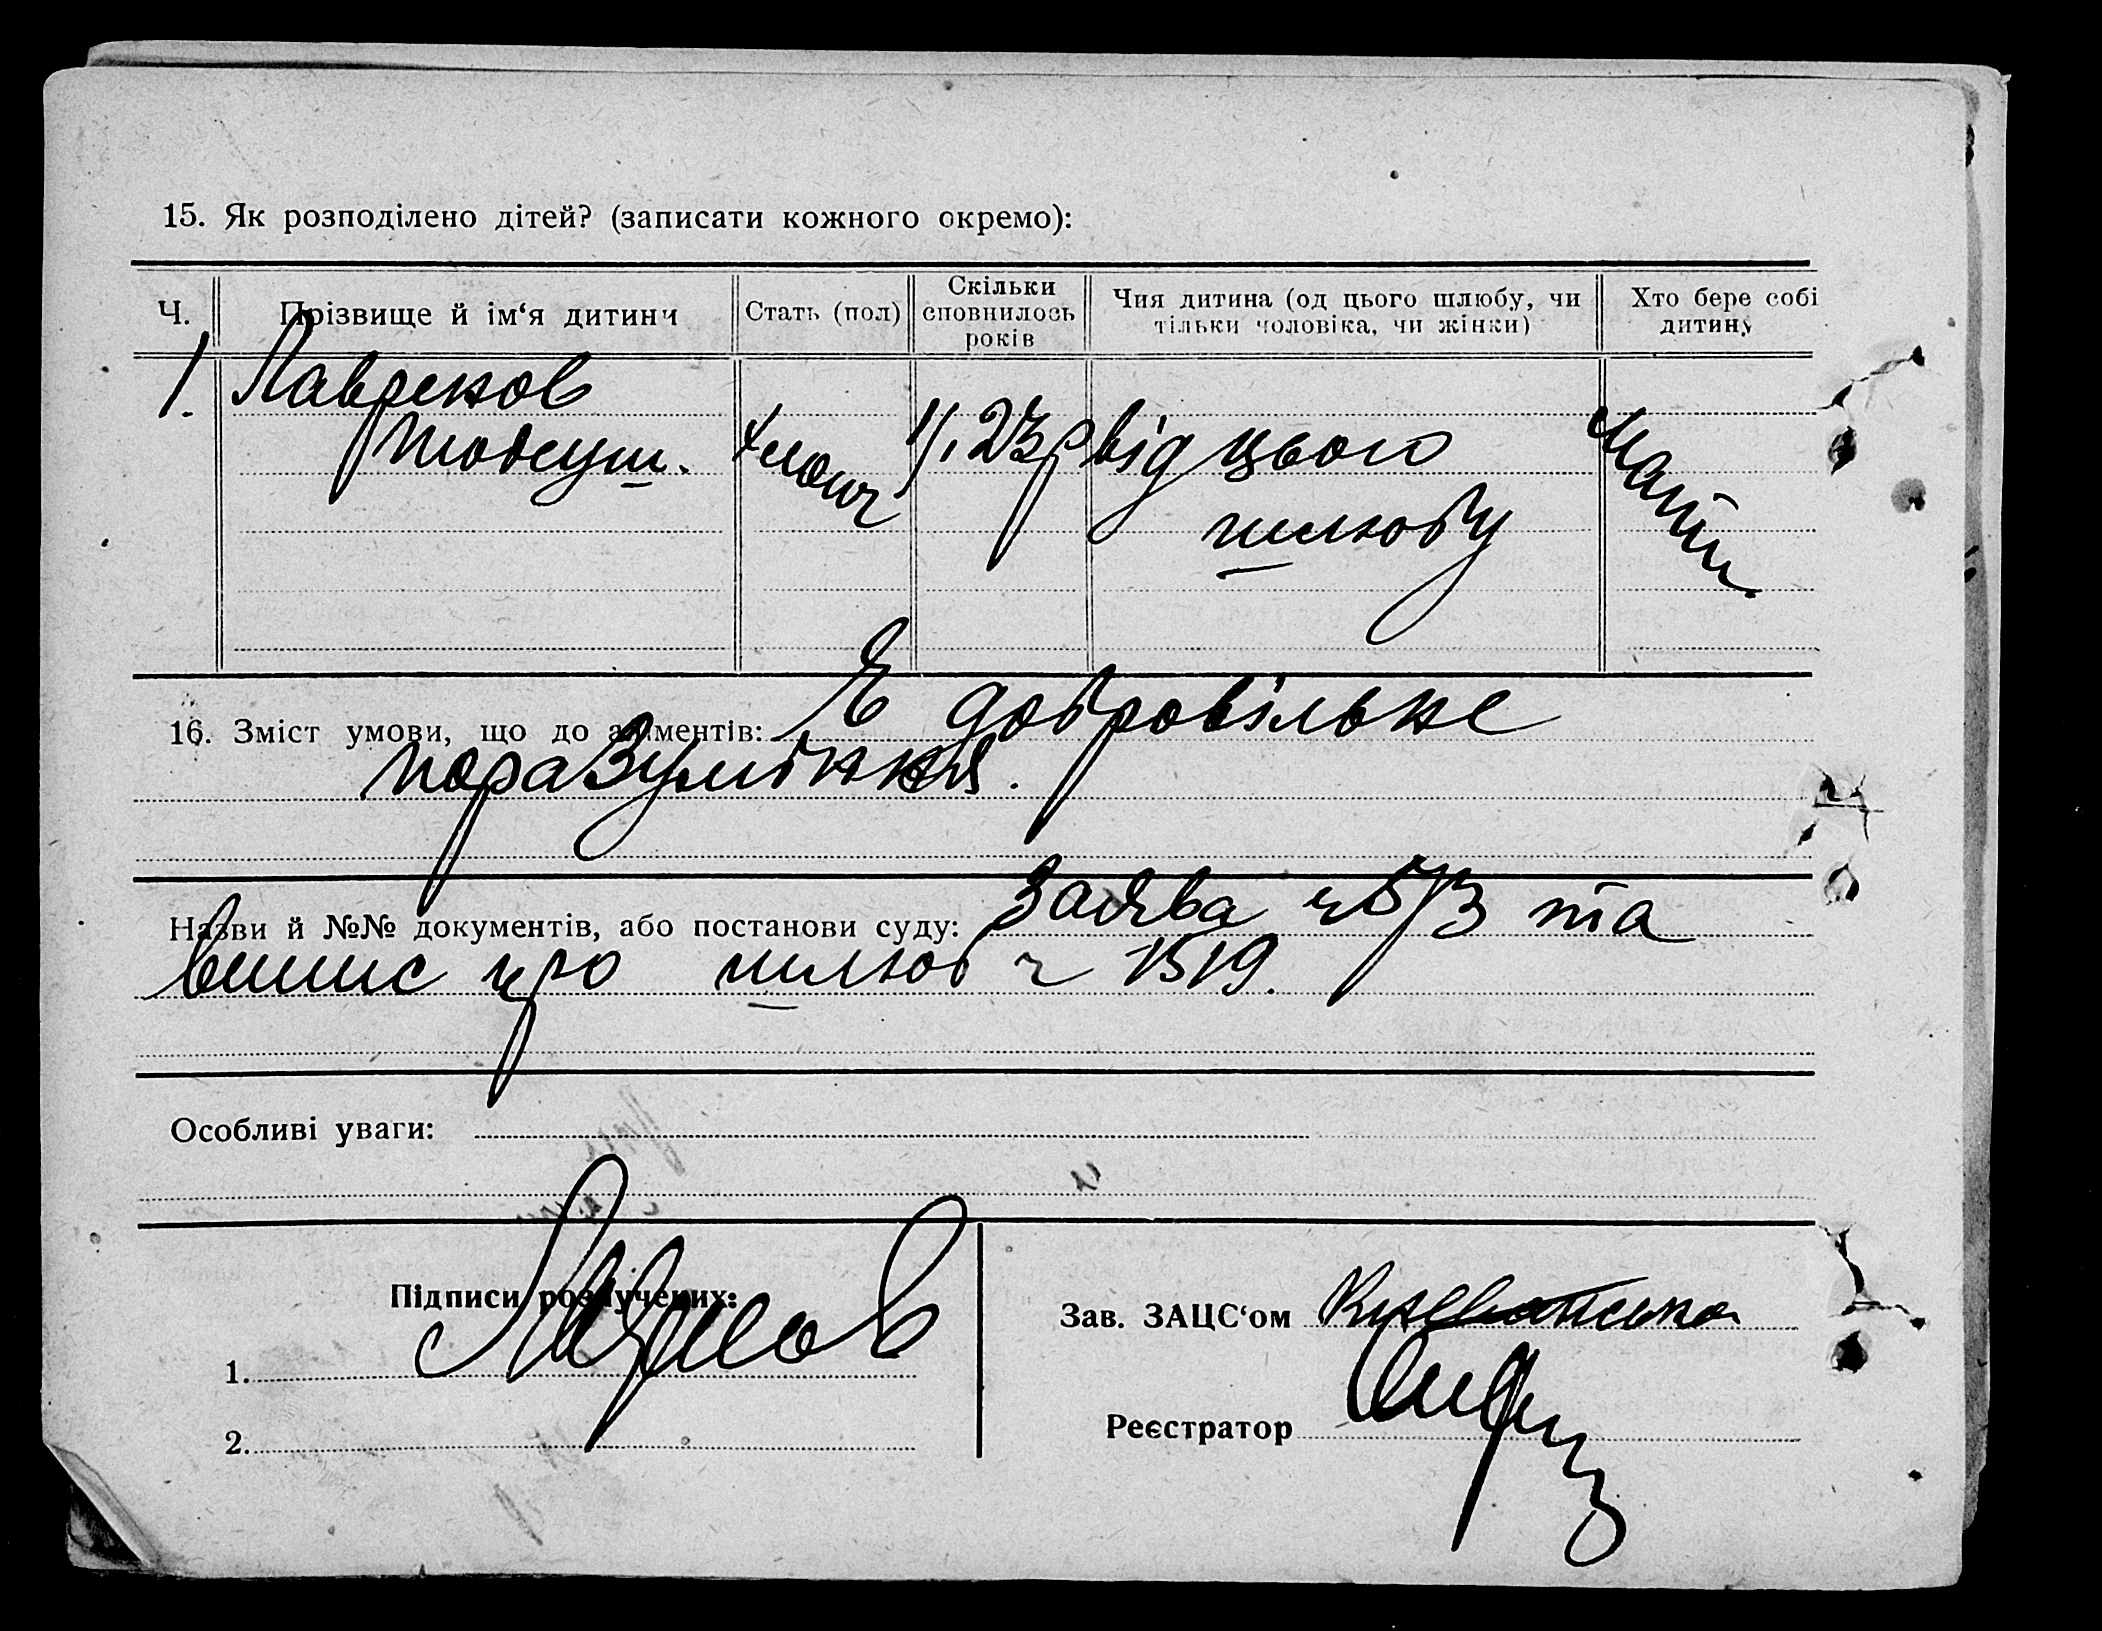 15. Як розподілено дітей? (записати кожного окремо):
Ч. Прізвище й ім‘я дитини Стать (пол) Скільки сповнилось років Чия дитина (од цього шлюбу, чи тільки чоловіка, чи жінки) Хто бере собі дитину
1. Лавренов
хлопч 1/, 23р від цього мати
шлюбу
16. Зміст умови, що до аліментів: Є добровільне
поразуміння.
Назви й №№ документів, або постанови суду: Заява ч 573 та
випис про шлюб ч 1519.
Особливі уваги:
Підписи розлучених:
Зав. ЗАЦС‘ом
1.
Реєстратор
2.